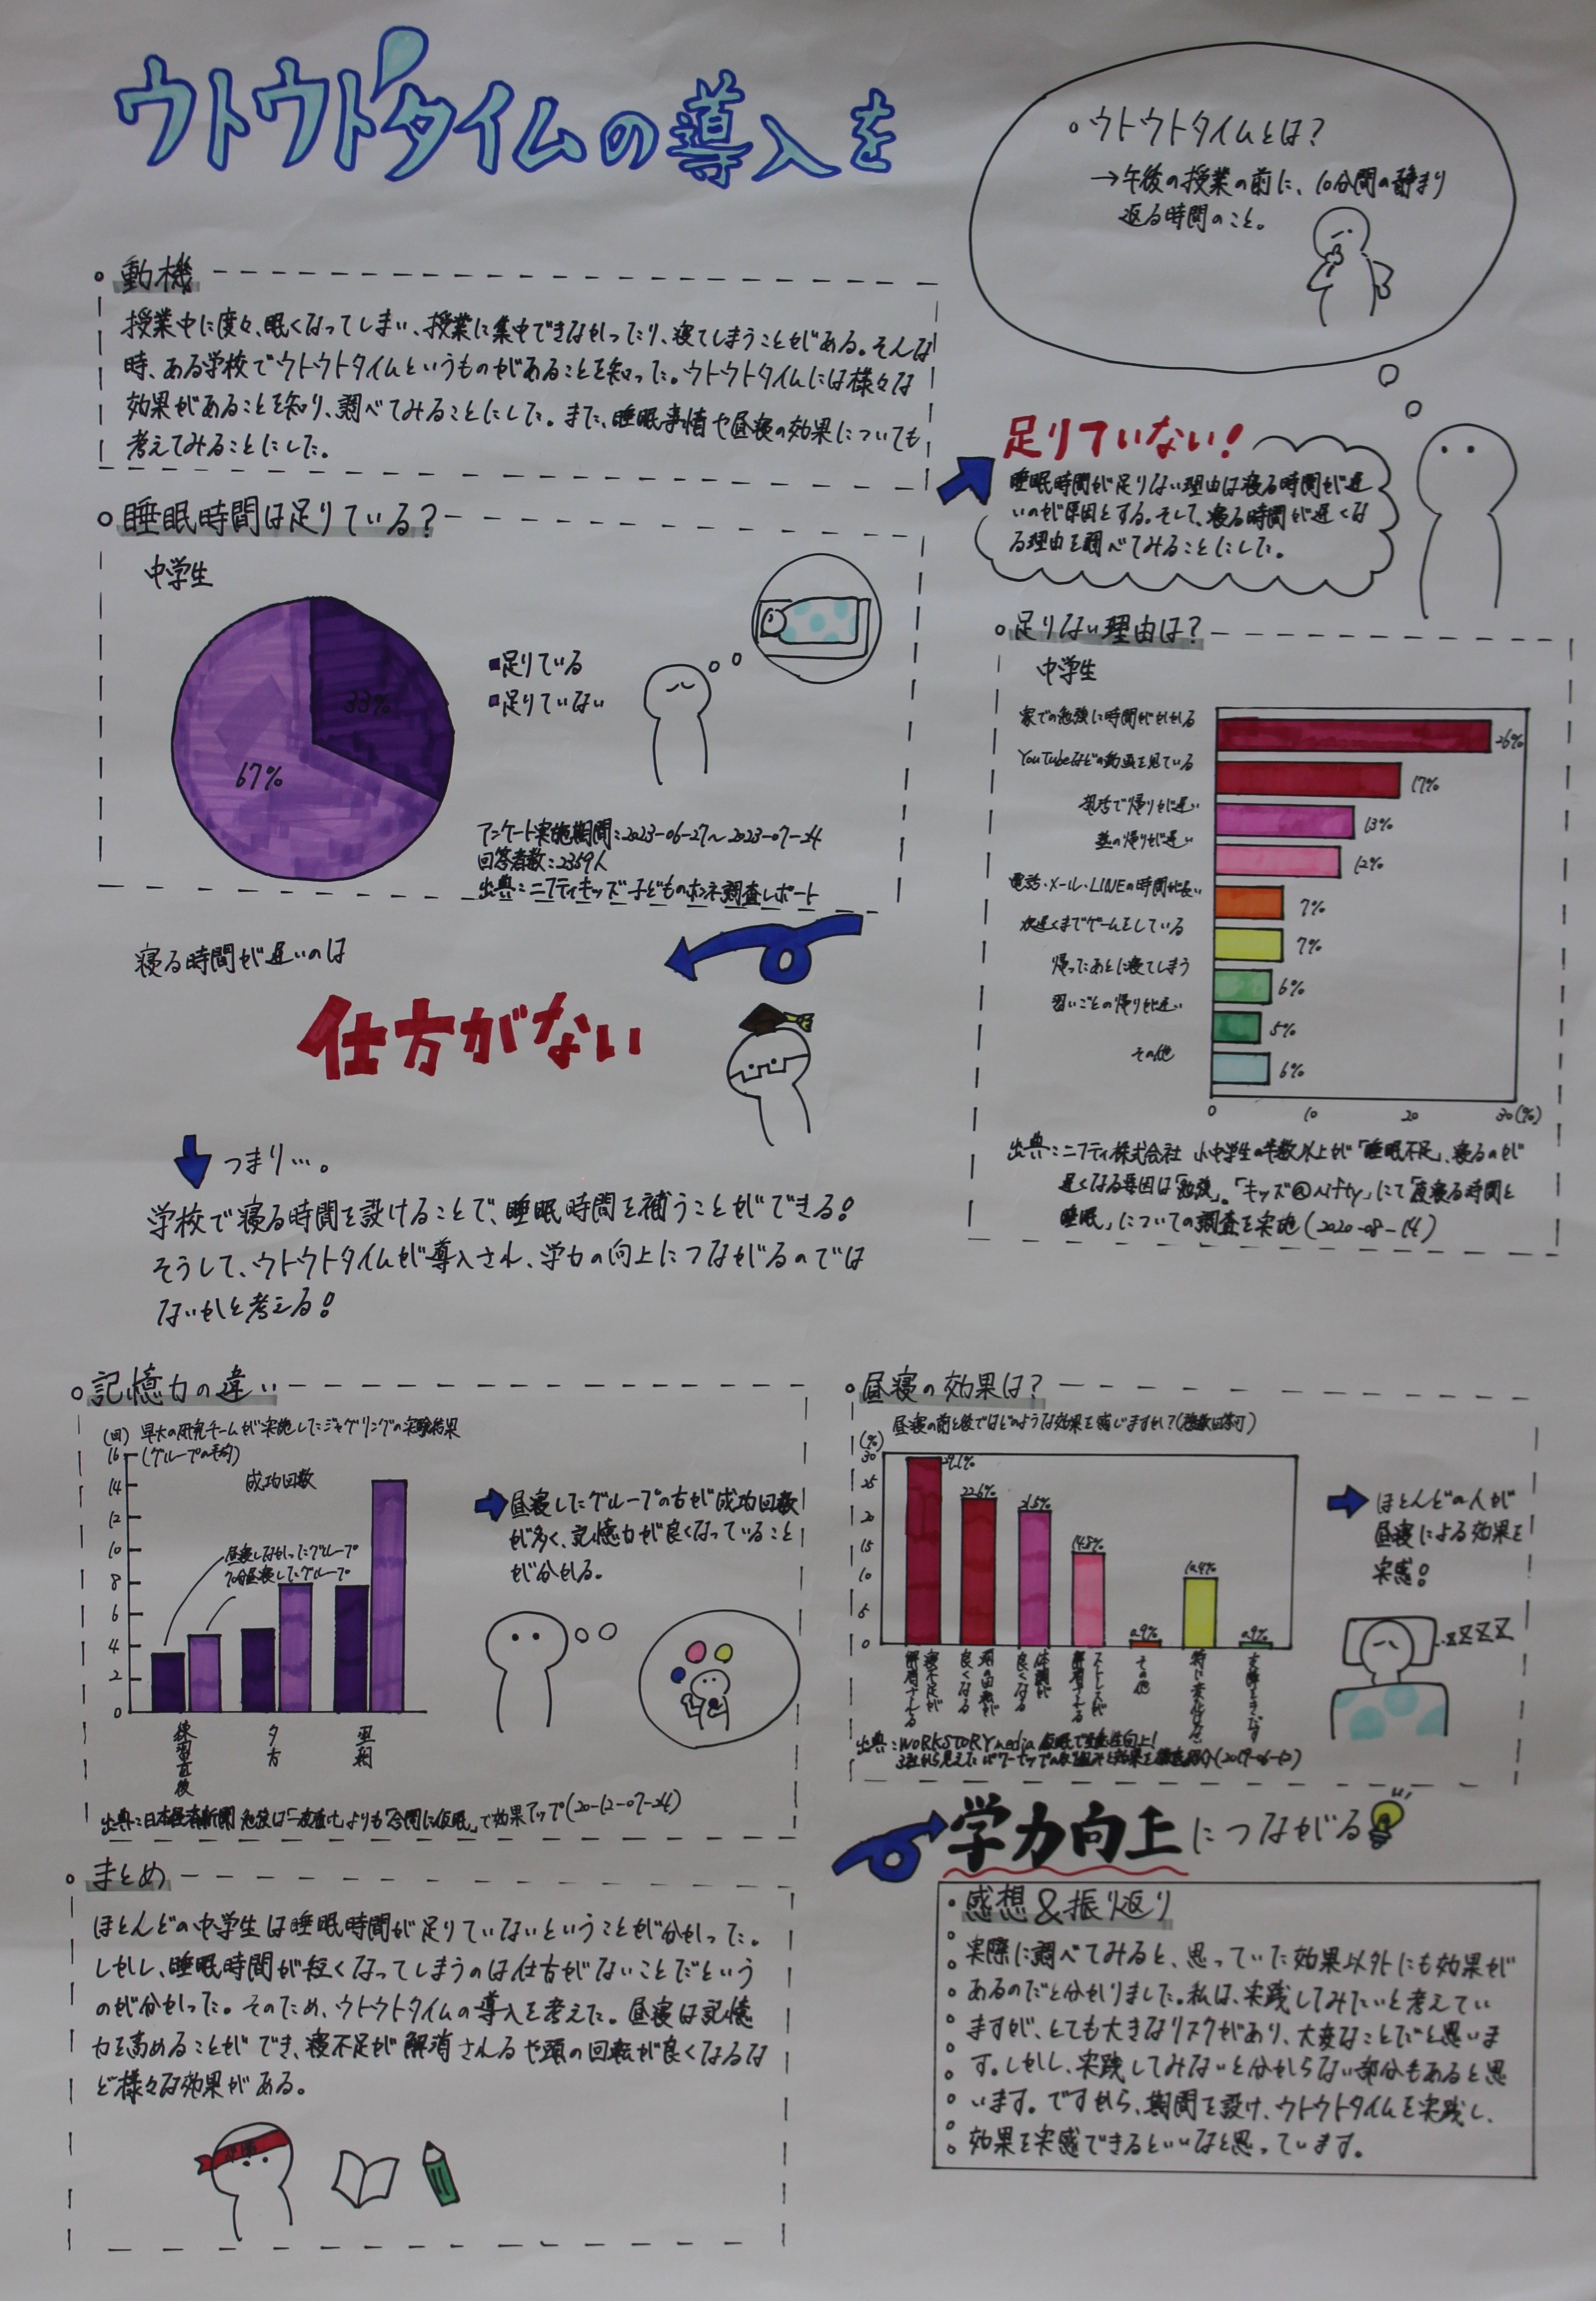 ウトウトタイムの導入を
・ウトウトタイムとは?
→午後の授業の前に、10分間の静まり
返る時間のこと。
・動機
授業中に度々、眠くなってしまい、授業に集中できなかったり、寝てしまうことがある。そんな
時、ある学校でウトウトタイムというものがあることを知った。ウトウトタイムには様々な
効果があることを知り、調べてみることにした。また、睡眠事情や昼寝の効果についても
考えてみることにした。
・睡眠時間は足りている?
中学生
33%
67%
■足りている
■足りていない
アンケート実施期間:2023-06-27～2023-07-24
回答者数:2359人
出典:ニフティキッズ 子どものホンネ調査レポート
足りていない!
睡眠時間が足りない理由は寝る時間が遅
いのが原因とする。そして、寝る時間が遅くな
る理由を調べてみることにした。
・足りない理由は?
中学生
家での勉強に時間がかかる
26%
YouTubeなどの動画を見ている
17%
部活で帰りが遅い
13%
塾の帰りが遅い
12%
電話・メール・LINEの時間が長い
7%
夜遅くまでゲームをしている
7%
帰ったあとに寝てしまう
6%
習いごとの帰りが遅い
5%
その他
6%
0 10 20 30(%)
出典:ニフティ株式会社 小中学生の半数以上が「睡眠不足」、寝るのが
遅くなる要因は「勉強」。「キッズ@nifty」にて「夜寝る時間と
睡眠」についての調査を実施(2020-08-14)
寝る時間が遅いのは
仕方がない
つまり…。
学校で寝る時間を設けることで、睡眠時間を補うことができる!
そうして、ウトウトタイムが導入され、学力の向上につながるのでは
ないかと考える!
・記憶力の違い
(回) 早大の研究チームが実施したジャグリングの実験結果
(グループの平均)
成功回数
16
14
12
10
8
6
4
2
0
昼寝しなかったグループ
70分昼寝したグループ
練習直後
夕方
翌朝
昼寝したグループの方が成功回数
が多く、記憶力が良くなっていること
が分かる。
出典:日本経済新聞 勉強は「一夜漬け」よりも「合間に仮眠」で効果アップ(20-12-07-24)
・昼寝の効果は?
昼寝の前と後ではどのような効果を感じますか?(複数回答可)
(%)
30
25
20
15
10
5
0
29.1%
22.6%
21.5%
14.8%
0.9%
10.4%
0.9%
寝不足が解消される
頭の回転が良くなる
体調が良くなる
ストレスが解消される
その他
特に変化なし
支障をきたす
ほとんどの人が
昼寝による効果を
実感!
zzzz
出典:WORKSTORYmedia 仮眠で生産性向上!
(2019-06-12)
学力向上につながる
・まとめ
ほとんどの中学生は睡眠時間が足りていないということが分かった。
しかし、睡眠時間が短くなってしまうのは仕方がないことだという
のが分かった。そのため、ウトウトタイムの導入を考えた。昼寝は記憶
力を高めることができ、寝不足が解消されるや頭の回転が良くなるな
ど様々な効果がある。
・感想&振り返り
実際に調べてみると、思っていた効果以外にも効果が
あるのだと分かりました。私は、実践してみたいと考えてい
ますが、とても大きなリスクがあり、大変なことだと思いま
す。しかし、実践してみないと分からない部分もあると思
います。ですから、期間を設け、ウトウトタイムを実践し、
効果を実感できるといいなと思っています。